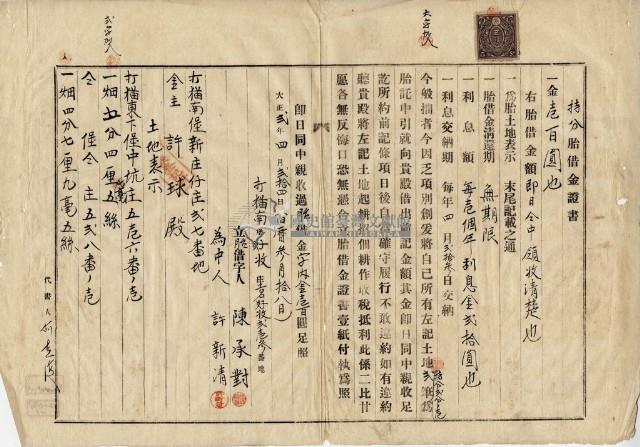 持分胎借金證書
一金壱百圓也
右胎借金額即日仝中領收清楚也
一為胎土地表示 末尾記載之通
一胎借金清還期 無期限
一利息額 每壱個年利息金弍拾圓也
一利息交納期 每年四月弍拾參日交納
今般拙者今因乏項別創爰將自己所有左記土地弍筆為
胎託中引就向貴殿借出記金額其金即日同中親收足
訖所約前記條項日後自應確守履行不敢違約如有違約
聽貴殿將左記土地起耕掛佃耕作收稅抵利此係二比甘
愿各無反悔口恐無憑立胎借金證書壹紙付執為照
即日同中親收過胎借金字內金壱百圓足照
大正弍年四月弍拾四日
打猫南堡好收
立胎借字人 陳承對
為中人 許新清
打猫南堡新庄仔庄弍七番地
金主 許球殿
土地表示
打猫東下堡中坑庄五壱六番ノ壱
一畑五分四厘五絲
仝堡仝庄五弍八番ノ壱
一畑四分七厘九毫五絲
代書人